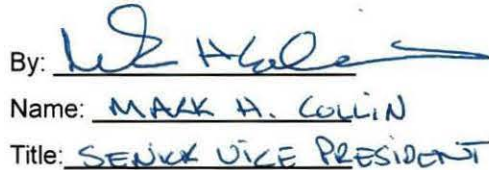 By:
Name: MARK H. COLLIN
Title: SENIOR VICE PRESIDENT